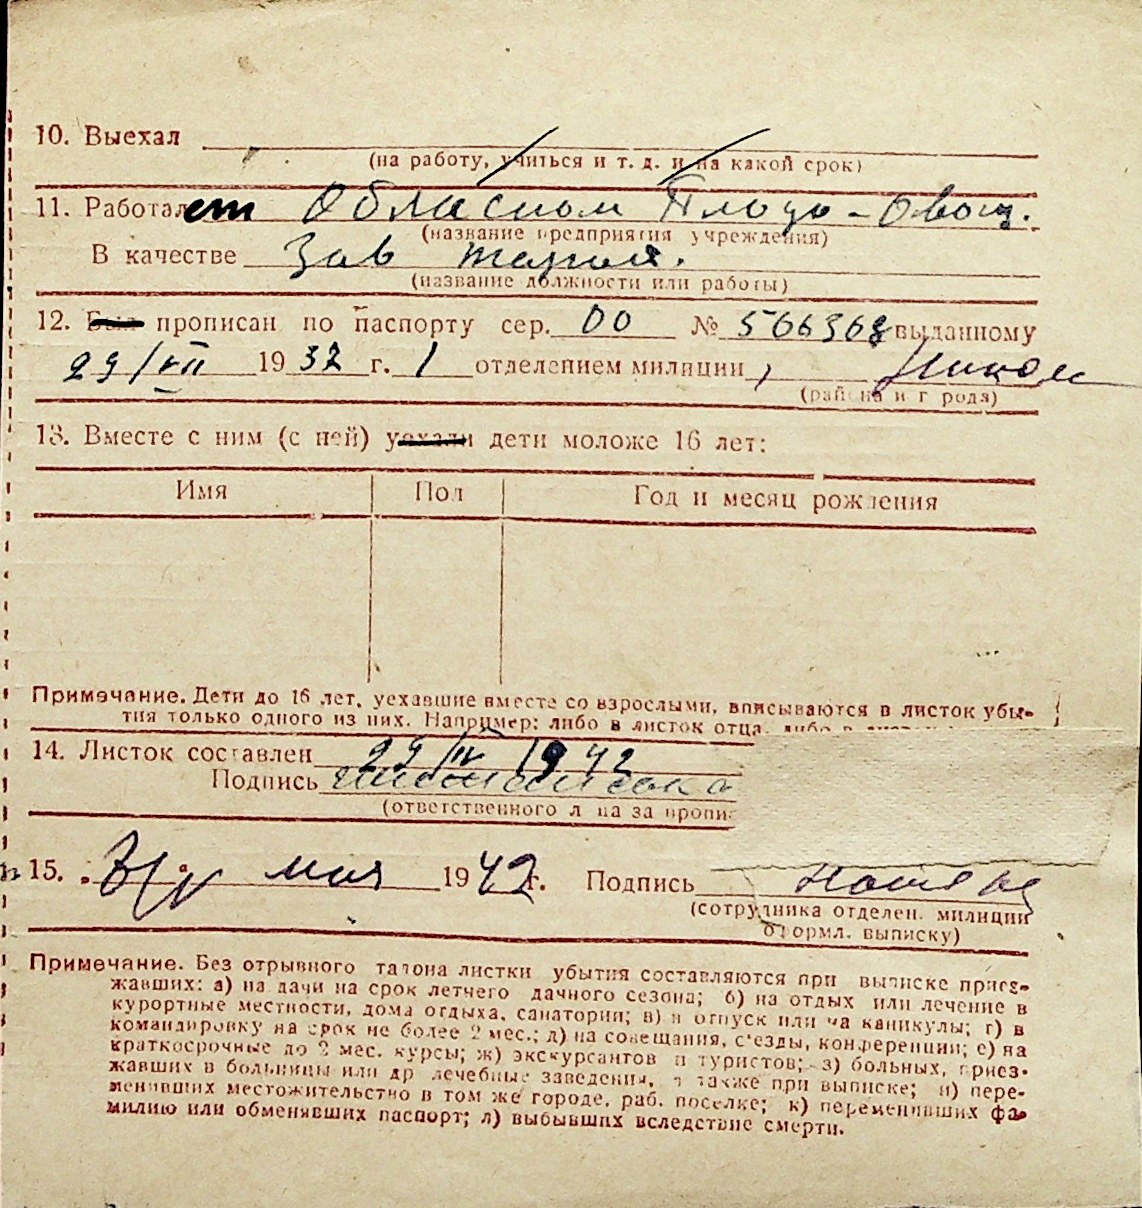 10. Выехал
(на работу, учиться и т. д. и на какой срок)
11. Работает Обласном Плодо-Овощ.
(название предприятия учреждения)
В качестве Зав
(название должности или работы)
12. Был прописан по паспорту сер. 00 № 566368 выданному
29/VII 1932 г. 1 отделением милиции,
(района и города)
13. Вместе с ним (с ней) уехали дети моложе 16 лет:
Имя Пол Год и месяц рождения
Примечание. Дети до 16 лет, уехавшие вместе со взрослыми, вписываются в листок убы-
тия только одного из них. Например: либо в листок отца, либо в
14. Листок составлен 29/IV 1942
Подпись
(ответственного лица за пропи
15. мая 1942 г. Подпись
(сотрудника отделен. милиции
оформл. выписку)
Примечание. Без отрывного талона листки убытия составляются при выписке приез-
жавших: а) на дачи на срок летнего дачного сезона; б) на отдых или лечение в
курортные местности, дома отдыха, санатории; в) в отпуск или на каникулы; г) в
командировку на срок не более 2 мес.; д) на совещания, съезды, конференции; е) на
краткосрочные до 2 мес. курсы; ж) экскурсантов и туристов; з) больных, приез-
жавших в больницы или др лечебные заведения, а также при выписке; и) пере-
менивших местожительство в том же городе, раб. поселке; к) переменивших фа-
милию или обменявших паспорт; л) выбывших вследствие смерти.